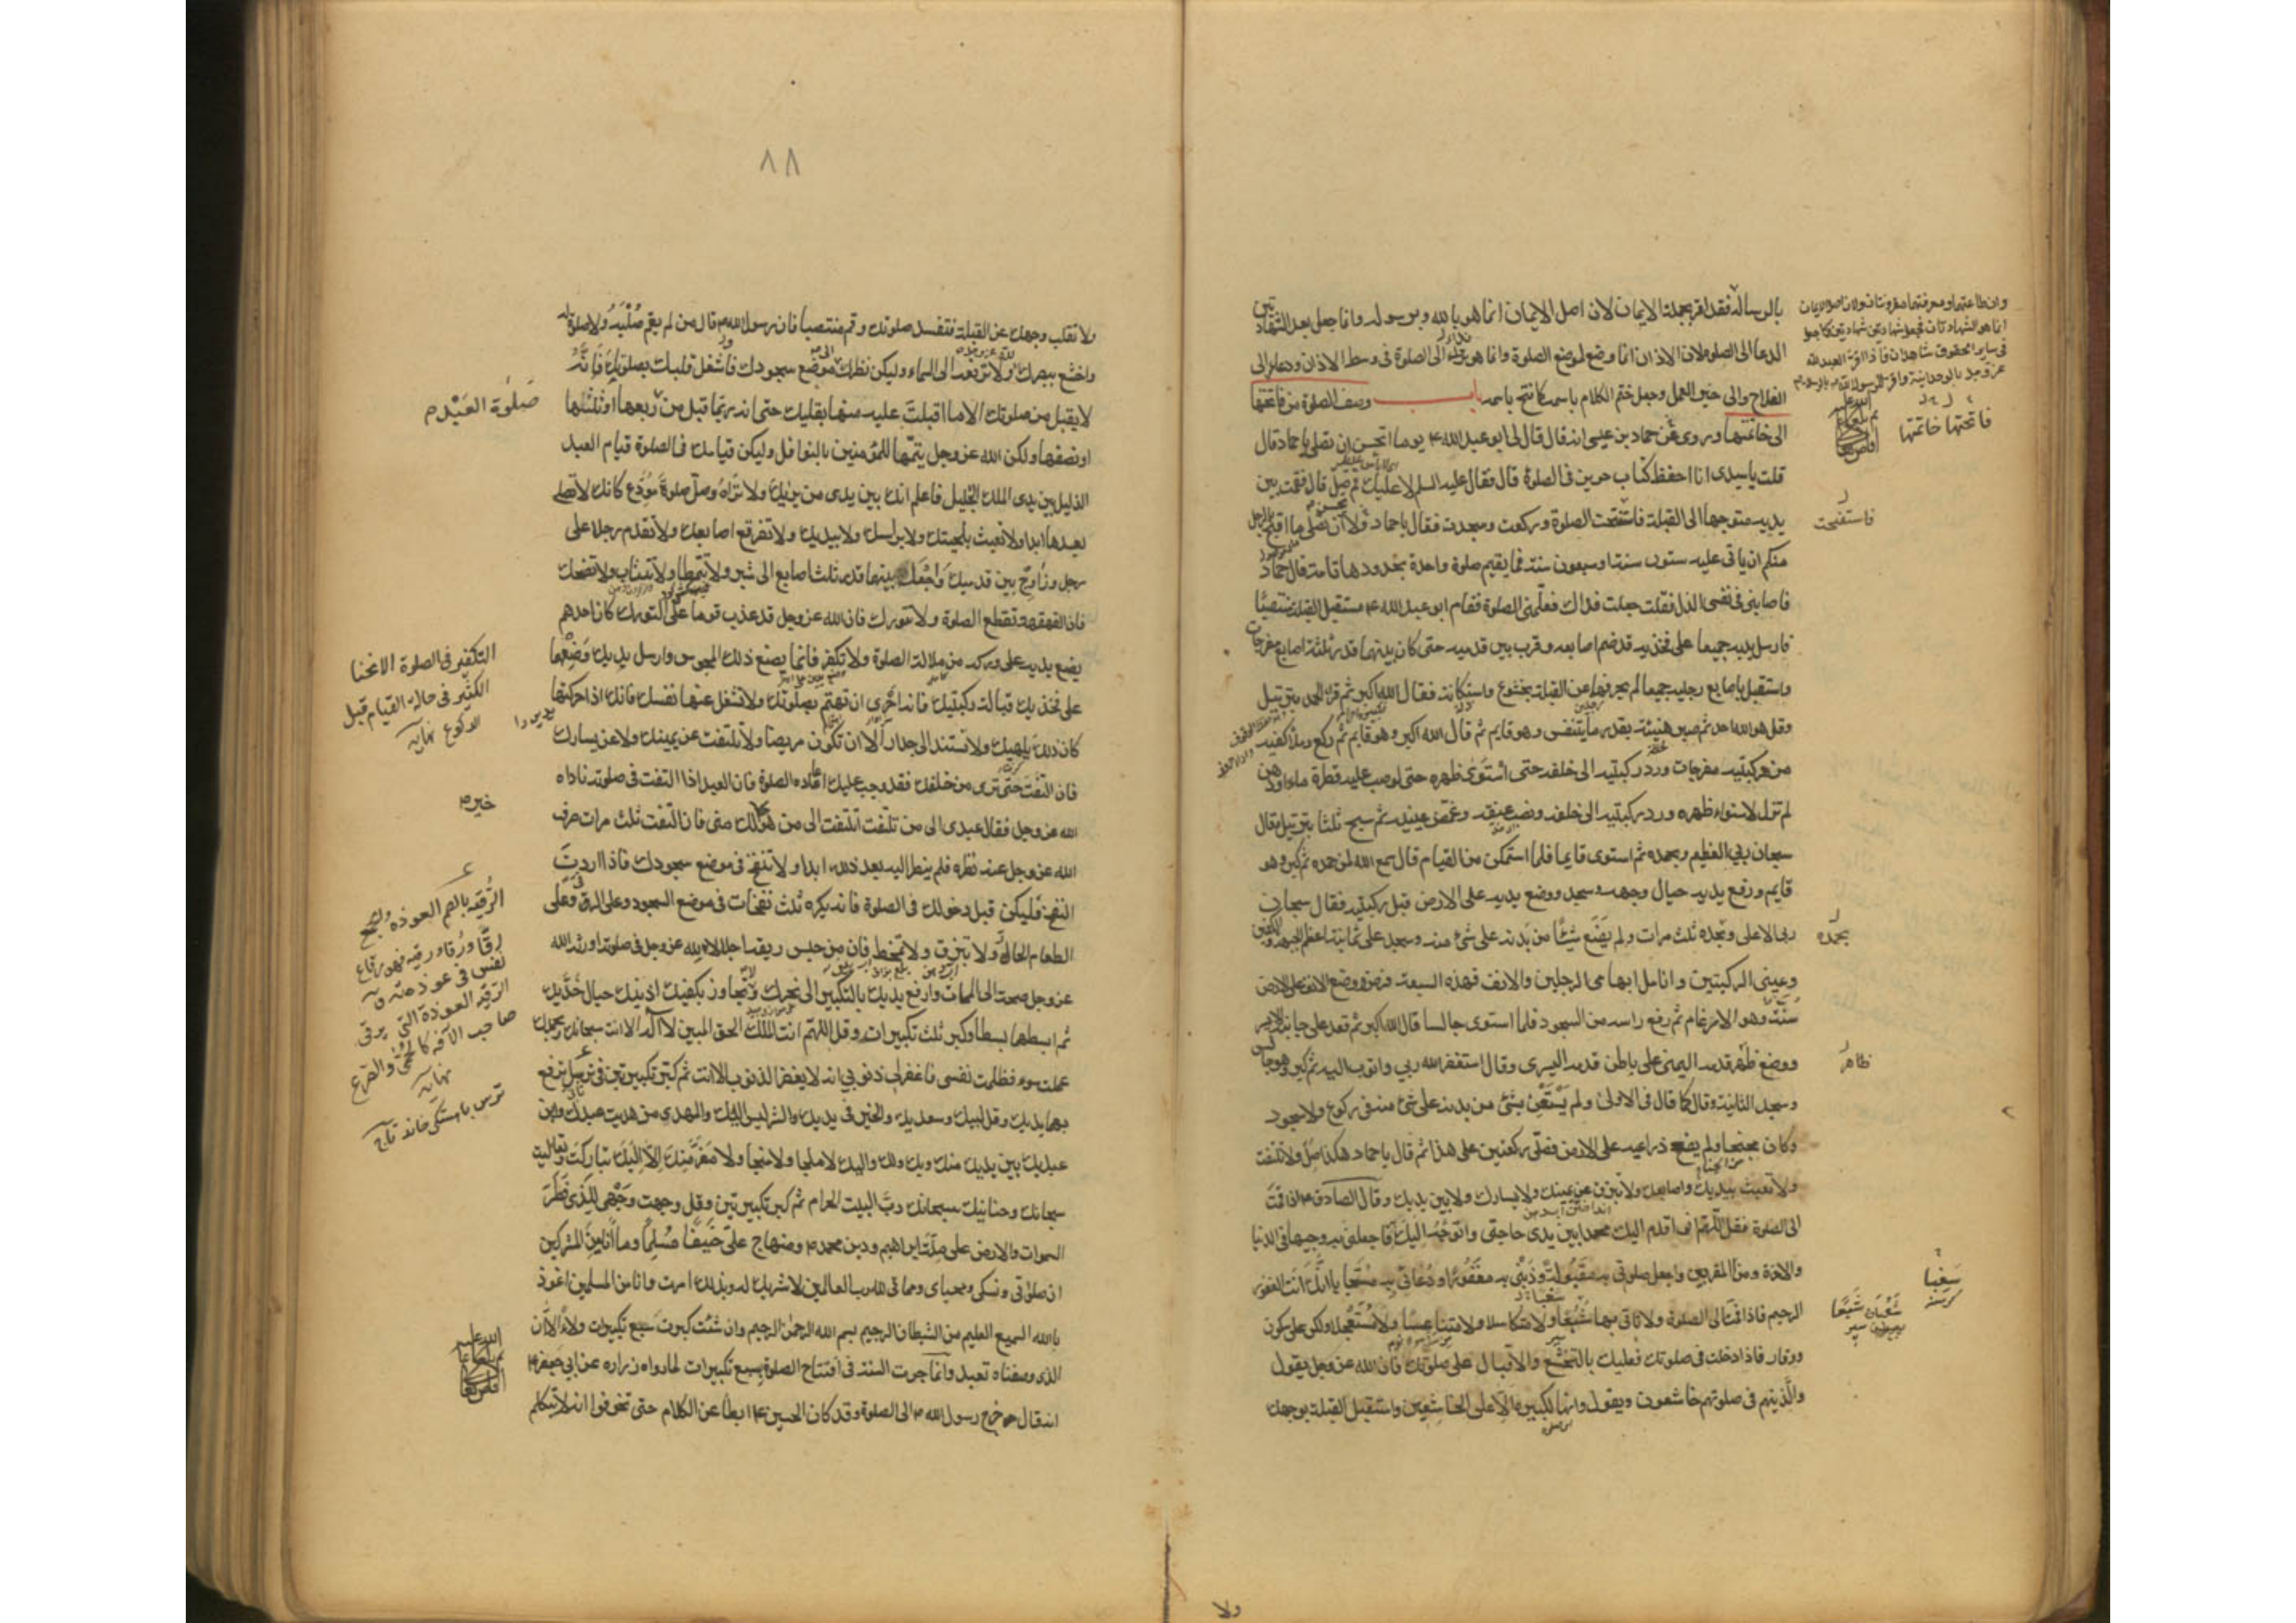 بالرسالة فقد اقر بجملة الايمان لان اصل الايمان انما هو بالله وبرسوله وانما جعل بعد الشهادتين
الدعا الى الصلوة لان الاذان انما وضع لموضع الصلوة وانما هو نداء الى الصلوة فى وسط الاذان ودعاء الى
الفلاح والى خير العمل وجعل ختم الكلام باسمه كما فتح باسمه باب وصف الصلوة من فاتحتها
الى خاتمتها وروى عن حماد بن عيسى انه قال قال لى ابو عبد الله ع يوما اتحسن ان تصلى يا حماد قال
قلت يا سيدى انا احفظ كتاب حريز فى الصلوة قال فقال عليه السلم لا عليك قم صل قال فقمت بين
يديه متوجها الى القبلة فاستفتحت الصلوة وركعت وسجدت فقال يا حماد لا تحسن ان تصلى ما اقبح بالرجل
منكم ان ياتى عليه ستون سنة او سبعون سنة فما يقيم صلوة واحدة بحدودها تامة قال حماد
فاصابنى فى نفسى الذل فقلت جعلت فداك فعلمنى الصلوة فقام ابو عبد الله ع مستقبل القبلة منتصبا
فارسل يديه جميعا على فخذيه قد ضم اصابعه وقرب بين قدميه حتى كان بينهما قدر ثلثة اصابع مفرجات
واستقبل باصابع رجليه جميعا لم يحرفهما عن القبلة بخشوع واستكانة فقال الله اكبر ثم قرا الحمد بترتيل
وقل هو الله احد ثم صبر هنيئة بقدر ما يتنفس وهو قايم ثم قال الله اكبر وهو قايم ثم ركع وملأ كفيه
من ركبتيه مفرجات ورد ركبتيه الى خلفه حتى استوى ظهره حتى لو صب عليه قطرة ماء او دهن
لم تزل لاستواء ظهره ورد ركبتيه الى خلفه ونصب عنقه وغمض عينيه ثم سبح ثلثا بترتيل وقال
سبحان ربى العظيم وبحمده ثم استوى قايما فلما استمكن من القيام قال سمع الله لمن حمده ثم كبر وهو
قايم ورفع يديه حيال وجهه وسجد ووضع يديه على الارض قبل ركبتيه فقال سبحان
ربى الاعلى وبحمده ثلث مرات ولم يضع شيئا من بدنه على شئ منه وسجد على ثمانية اعظم الجبهة والكفين
وعينى الركبتين وانامل ابهامى الرجلين والانف فهذه السبعة فرض ووضع الانف على الارض
سنة وهو الارغام ثم رفع راسه من السجود فلما استوى جالسا قال الله اكبر ثم قعد على جانبه الايسر
ووضع ظهر قدمه اليمنى على باطن قدمه اليسرى وقال استغفر الله ربى واتوب اليه ثم كبر وهو جالس
وسجد الثانية وقال كما قال فى الاولى ولم يستعن بشئ من بدنه على شئ منه فى ركوع ولا سجود
وكان مجنحا ولم يضع ذراعيه على الارض فصلى ركعتين على هذا ثم قال يا حماد هكذا صل ولا تلتفت
ولا تعبث بيديك واصابعك ولا تبزق عن يمينك ولا يسارك ولا بين يديك وقال الصادق ع اذا قمت
الى الصلوة فقل اللهم انى اقدم اليك محمدا بين يدى حاجتى واتوجه اليك فاجعلنى به وجيها فى الدنيا
والاخرة ومن المقربين واجعل صلوتى به مقبولة وذنبى به مغفورا ودعائى به مستجابا انك انت الغفور
الرحيم فاذا قمت الى الصلوة ولا تاتى بها شبعا ولا متكاسلا ولا متناعسا ولا مستعجلا ولكن على سكون
ووقار فاذا دخلت فى صلوتك فعليك بالتخشع والاقبال على صلوتك فان الله عز وجل يقول
والذينهم فى صلوتهم خاشعون ويقول وانها لكبيرة الا على الخاشعين واستقبل القبلة بوجهك
وان طاعتهما ومعرفتهما مقرونتان ولان اصل الايمان
انما هو الشهادتان فجعل شهادتين شهادتين كما جعل
فى ساير الحقوق شاهدان فاذا اقر العبد لله
عز وجل بالوحدانية واقر للرسول بالرسالة
فاتحتها خاتمتها
فاستفتحت
بحمده
ظاهر
شبعا
ولا
٨٨
ولا تقلب وجهك عن القبلة فتفسد صلوتك وقم منتصبا فان رسول الله ص قال من لم يقم صلبه فلا صلوة له
واخشع ببصرك لله عز وجل ولا ترفعه الى السماء وليكن نظرك الى موضع سجودك فاشغل قلبك بصلوتك فانه
لا يقبل من صلوتك الا ما اقبلت عليه منها بقلبك حتى انه ربما قبل من ربعها او ثلثها
او نصفها ولكن الله عز وجل يتمها للمؤمنين بالنوافل وليكن قيامك فى الصلوة قيام العبد
الذليل بين يدى الملك الجليل فاعلم انك بين يدى من يريك ولا تراه وصل صلوة مودع كانك لا تصلى
بعدها ابدا ولا تعبث بلحيتك ولا براسك ولا بيديك ولا تفرقع اصابعك ولا تقدم رجلا على
رجل وزاوج بين قدميك واجعل بينهما قدر ثلث اصابع الى شبر ولا تتمطا ولا تتثاب ولا تضحك
فان القهقهة تقطع الصلوة ولا تتورك فان الله عز وجل قد عذب قوما على التورك كان احدهم
يضع يديه على وركه من ملالة الصلوة ولا تكفر فانما يصنع ذلك المجوس وارسل يديك وضعهما
على فخذيك قبالة ركبتيك فانه احرى ان تهتم بصلوتك ولا تشغل عنها نفسك فانك اذا حركتها
كان ذلك يلهيك ولا تستند الى جدار الا ان تكون مريضا ولا تلتفت عن يمينك ولا عن يسارك
فان التفت حتى ترى من خلفك فقد وجب عليك اعاده الصلوة فان العبد اذا التفت فى صلوته ناداه
الله عز وجل فقال عبدى الى من تلتفت اتلتفت الى من هو خير لك منى فان التفت ثلث مرات صرف
الله عز وجل عنه نظره فلم ينظر اليه بعد ذلك ابدا ولا تنفخ فى موضع سجودك فاذا اردت
النفخ فليكن قبل دخولك فى الصلوة فانه يكره ثلث نفخات فى موضع السجود وعلى الرقى وعلى
الطعام الحار ولا تبزق ولا تمخط فان من حبس ريقه اجلالا لله عز وجل فى صلوته اورثه الله
عز وجل صحة الى الممات وارفع يديك بالتكبير الى نحرك ولا تجاوز بكفيك اذنيك حيال خديك
ثم ابسطهما بسطا وكبر ثلث تكبيرات وقل اللهم انت الملك الحق المبين لا اله الا انت سبحانك وبحمدك
عملت سوء وظلمت نفسى فاغفر لى ذنوبى انه لا يغفر الذنوب الا انت ثم كبر تكبيرتين فى ترسل ترفع
بهما يديك وقل لبيك وسعديك والخير فى يديك والشر ليس اليك والمهدى من هديت عبدك وابن
عبديك بين يديك منك وبك ولك واليك لا ملجا ولا منجا ولا مفر منك الا اليك تباركت وتعاليت
سبحانك وحنانيك سبحانك رب البيت الحرام ثم كبر تكبيرتين وقل وجهت وجهى للذى فطر
السموات والارض على ملة ابراهيم ودين محمد ص ومنهاج على حنيفا مسلما وما انا من المشركين
ان صلوتى ونسكى ومحياى ومماتى لله رب العالمين لا شريك له وبذلك امرت وانا من المسلمين اعوذ
بالله السميع العليم من الشيطان الرجيم بسم الله الرحمن الرحيم وان شئت كبرت سبع تكبيرات ولاء الا ان
الذى وصفناه تعبد وانما جرت السنة فى افتتاح الصلوة بسبع تكبيرات لما رواه زراره عن ابى جعفر ع
انه قال خرج رسول الله ص الى الصلوة وقد كان الحسين ع ابطأ عن الكلام حتى تخوفوا انه لا يتكلم
صلوة العبد م
التكفير فى الصلوة الانحنا
الكثير فى حالة القيام قبل
الركوع نهايه
خير م
الرقيه بالضم العوذه
الرقيه العوذة التى يرقى
صاحب الآفه كالحمى والصرع
نهايه